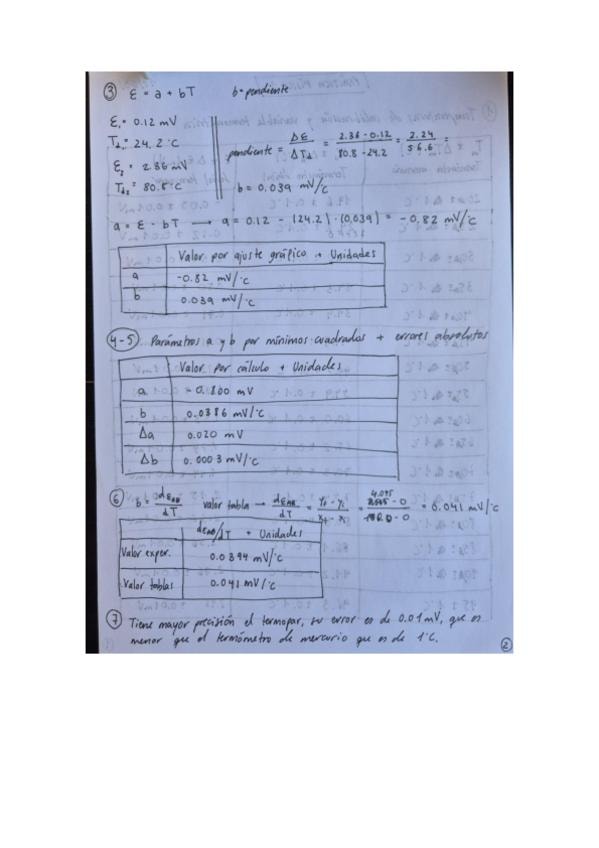 ③ ε = a + bT b = pendiente
ε₁ = 0.12 mV
Td₁ = 24.2 °C
ε₂ = 2.36 mV
Td₂ = 80.8 °C
pendiente = Δε/ΔTd = (2.36 - 0.12)/(80.8 - 24.2) = 2.24/56.6 =
b = 0.039 mV/°C
a = ε - bT → a = 0.12 - (24.2) · (0,039) = - 0,82 mV/°C
Valor por ajuste gráfico + Unidades
a -0.82 mV/°C
b 0.039 mV/°C
④-⑤ Parámetros a y b por mínimos cuadrados + errores absolutos
Valor por cálculo + Unidades
a - 0.800 mV
b 0.0386 mV/°C
Δa 0.020 mV
Δb 0.0003 mV/°C
⑥ b = dεAB/dT valor tabla → dεAB/dT = = 4.095 - 0 / - 0 = 0.041 mV/°C
dεAB/dT + Unidades
Valor exper. 0.0394 mV/°C
Valor tablas 0.041 mV/°C
⑦ Tiene mayor precisión el termopar, su error es de 0.01 mV, que es
menor que el termómetro de mercurio que es de 1°C.
②